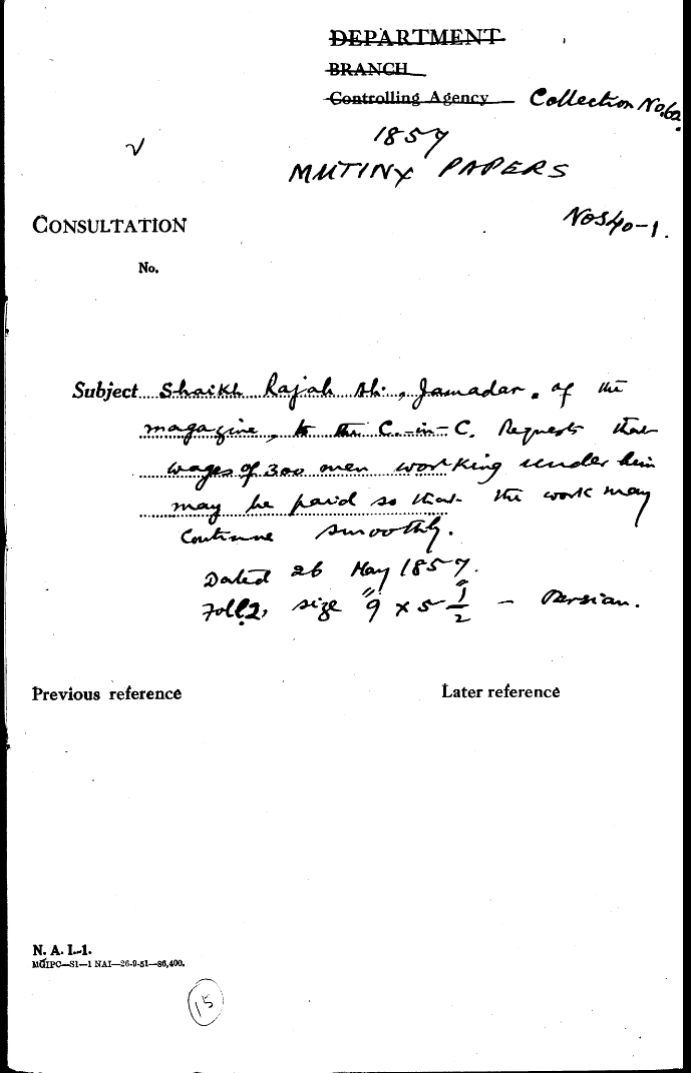 DEPARTMENT
BRANCH
Controlling Agency Collection No. 60.
1857
MUTINY PAPERS
Nos 40-1.
CONSULTATION
No.
Subject Shaikh Rajab Ali, Jamadar, of the
magazine, to the C.-in-C. Requests that
wages of 300 men working under him
may be paid so that the work may
continue smoothly.
Dated 26 May 1857.
Foll 2, size 9" x 5 1/2" - Persian.
Previous reference Later reference
N. A. I.-1.
MGIPC—S1—1 NAI—26-9-51—86,400.
15